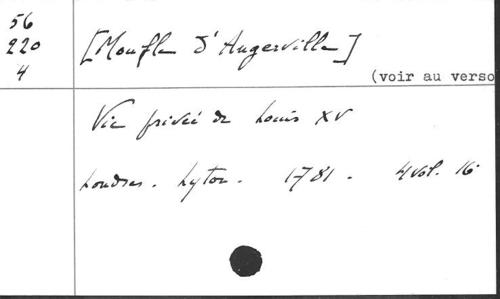 56
220
4
[Moufle d'Angerville]
(voir au verso
Vie privée de Louis XV
Londres. Lyton. 1781. 4 vol. 16